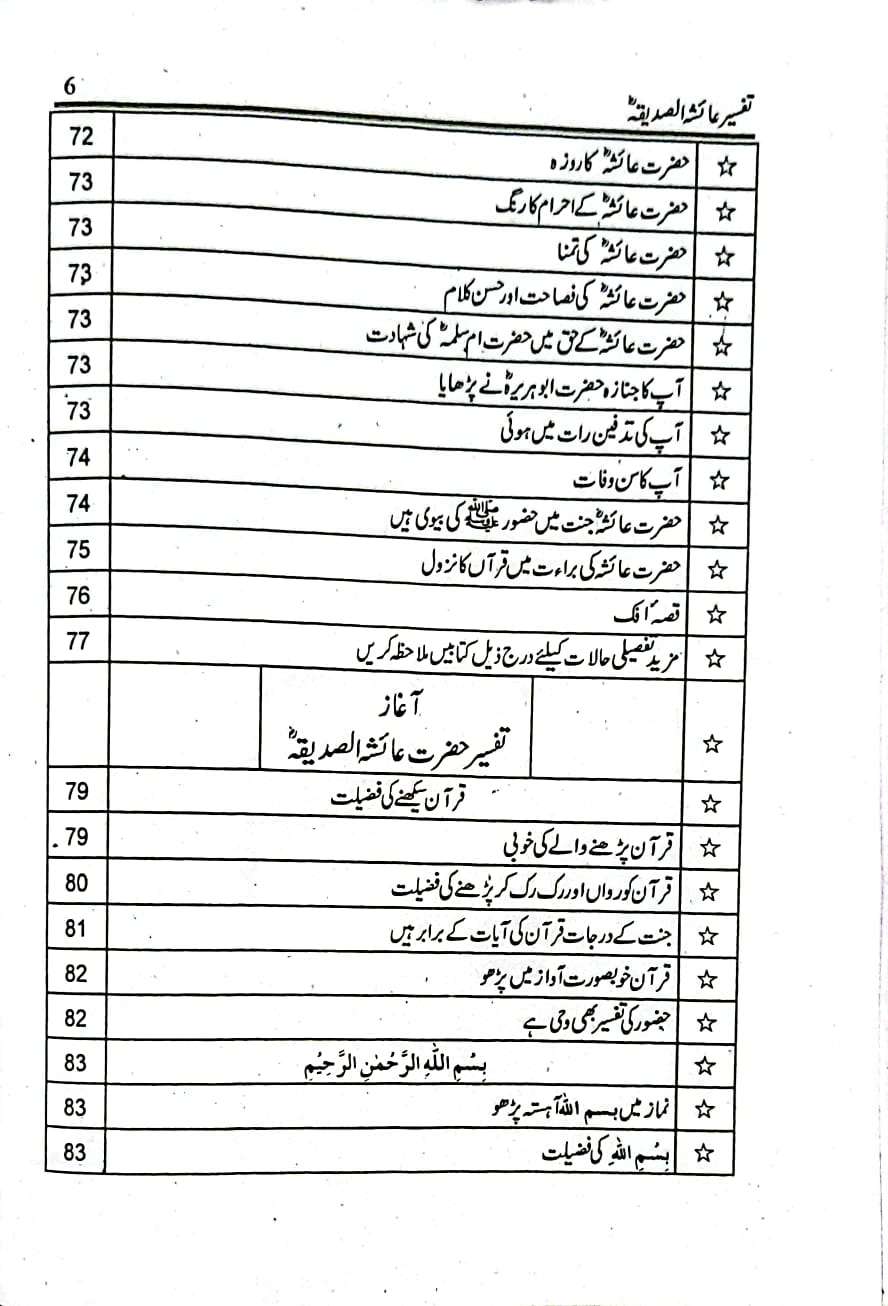 6
تفسیر عائشہ الصدیقہؓ
☆ حضرت عائشہؓ کا روزہ 72
☆ حضرت عائشہؓ کے احرام کا رنگ 73
☆ حضرت عائشہؓ کی تمنا 73
☆ حضرت عائشہؓ کی فصاحت اور حسن کلام 73
☆ حضرت عائشہؓ کے حق میں حضرت ام سلمہؓ کی شہادت 73
☆ آپ کا جنازہ حضرت ابو ہریرہؓ نے پڑھایا 73
☆ آپ کی تدفین رات میں ہوئی 73
☆ آپ کا سن وفات 74
☆ حضرت عائشہؓ جنت میں حضور ﷺ کی بیوی ہیں 74
☆ حضرت عائشہ کی براءت میں قرآں کا نزول 75
☆ قصہٴ افک 76
☆ مزید تفصیلی حالات کیلئے درج ذیل کتابیں ملاحظہ کریں 77
آغاز
☆ تفسیر حضرت عائشہ الصدیقہؓ
☆ قرآن سیکھنے کی فضیلت 79
☆ قرآن پڑھنے والے کی خوبی 79
☆ قرآن کو رواں اور رک رک کر پڑھنے کی فضیلت 80
☆ جنت کے درجات قرآن کی آیات کے برابر ہیں 81
☆ قرآن خوبصورت آواز میں پڑھو 82
☆ حضور کی تفسیر بھی وحی ہے 82
☆ بِسْمِ اللّٰهِ الرَّحْمٰنِ الرَّحِيْمِ 83
☆ نماز میں بسم اللہ آہستہ پڑھو 83
☆ بِسْمِ اللّٰهِ کی فضیلت 83